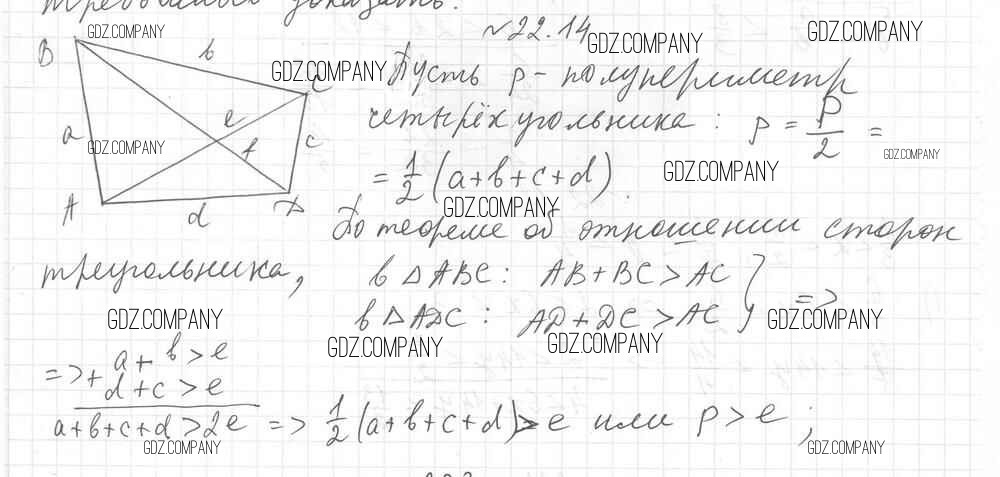 требовалось доказать.
№22.14
Пусть p - полупериметр
четырёхугольника: p = P/2 =
= 1/2 (a+b+c+d).
По теореме об отношении сторон
треугольника,
в △ABC: AB+BC>AC
в △ADC: AD+DC>AC } =>
=> + a+b>e
d+c>e
a+b+c+d>2e => 1/2 (a+b+c+d)>e или p>e;
B
b
C
a
e
f
c
A
d
D
GDZ.COMPANY
GDZ.COMPANY
GDZ.COMPANY
GDZ.COMPANY
GDZ.COMPANY
GDZ.COMPANY
GDZ.COMPANY
GDZ.COMPANY
GDZ.COMPANY
GDZ.COMPANY
GDZ.COMPANY
GDZ.COMPANY
GDZ.COMPANY
GDZ.COMPANY